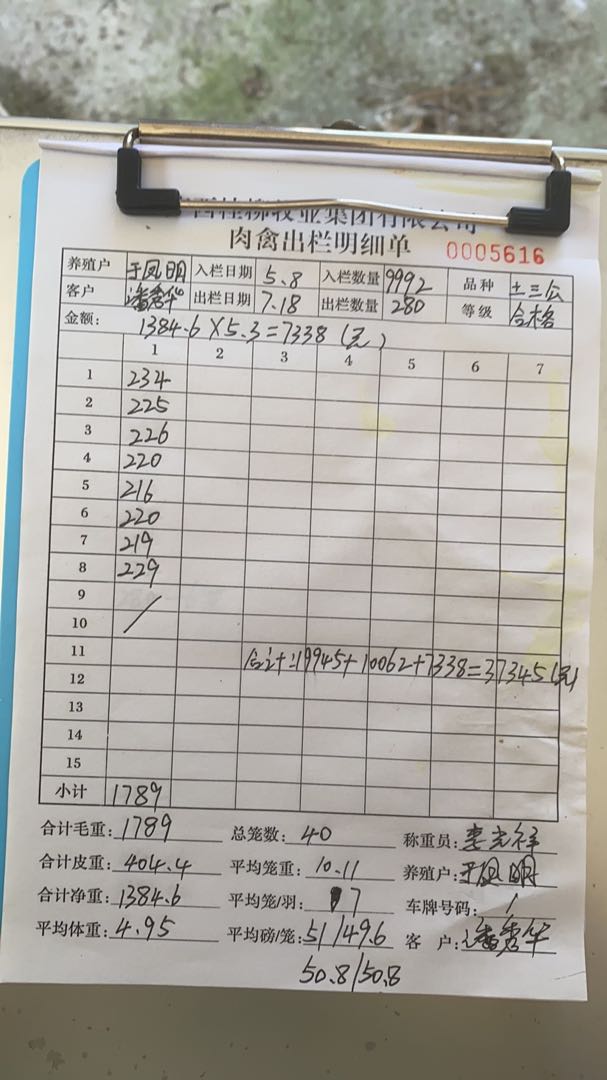 西桂柳牧业集团有限公司
肉禽出栏明细单 0005616
养殖户 于凤明 入栏日期 5.8 入栏数量 9992 品种 土三公
客户 潘秀华 出栏日期 7.18 出栏数量 280 等级 合格
金额: 1384.6×5.3=7338(元)
1 2 3 4 5 6 7
1 234
2 225
3 226
4 220
5 216
6 220
7 219
8 229
9
10
11
合计:19945+10062+7338=37345(元)
12
13
14
15
小计 1789
合计毛重: 1789 总笼数: 40 称重员: 李光祥
合计皮重: 404.4 平均笼重: 10.11 养殖户: 于凤明
合计净重: 1384.6 平均笼/羽: 7 车牌号码: /
平均体重: 4.95 平均磅/笼: 51/49.6 客 户: 潘秀华
50.8/50.8